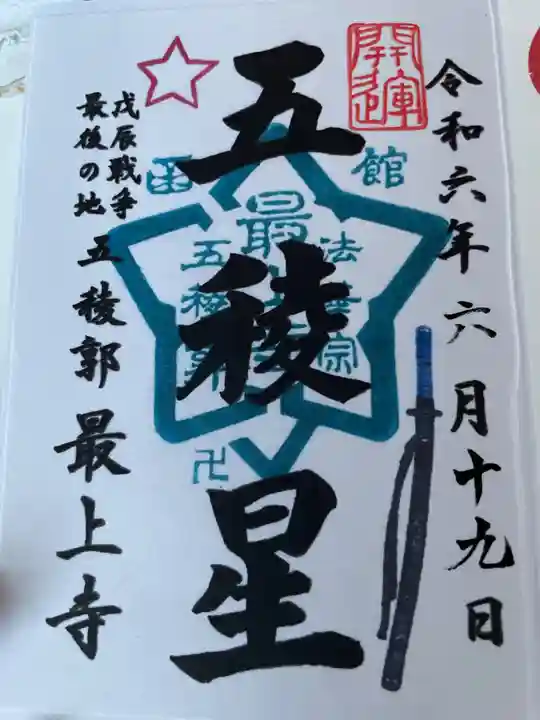 開運
令和六年六月十九日
五稜星
函館
法華宗
最上寺
五稜郭
卍
戊辰戦争
最後の地
五稜郭
最上寺